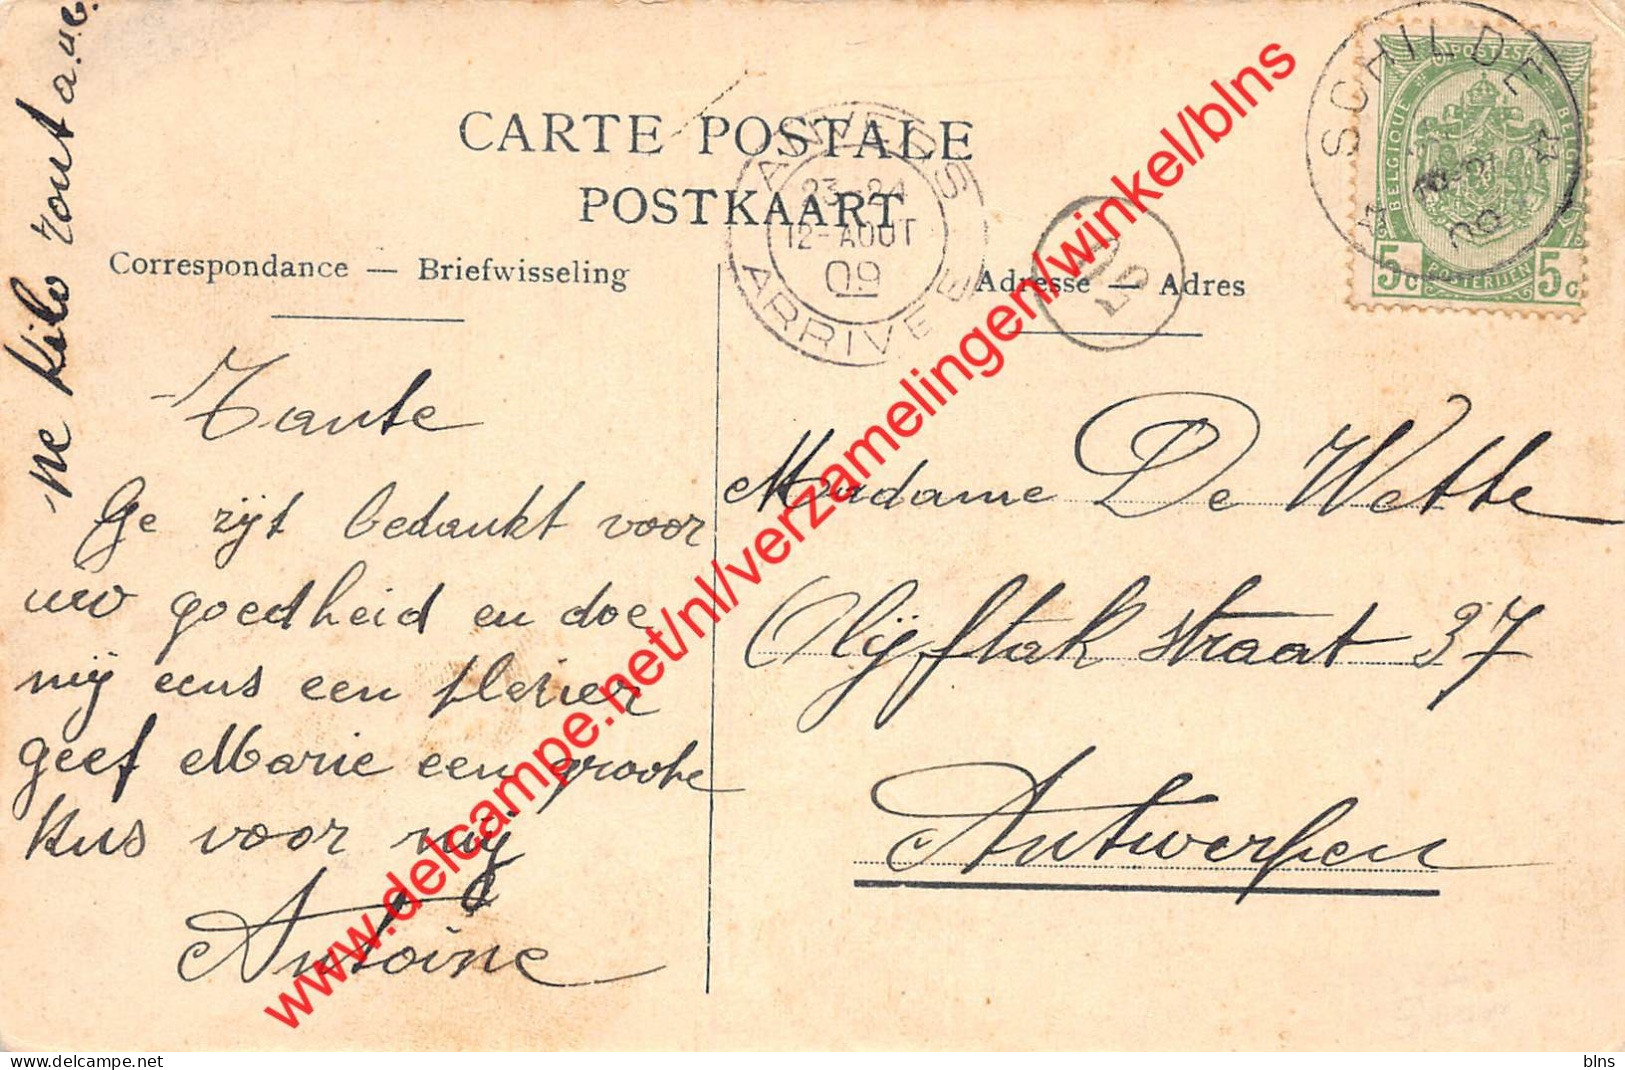 ne kilo zout a.u.b.
CARTE POSTALE
POSTKAART
Correspondance — Briefwisseling
Adresse — Adres
SCHILDE
09
POSTES
BELGIQUE
POSTERIJEN
5c 5c
ANVERS
23-24
12-AOUT
09
ARRIVEE
Tante
Ge zijt bedankt voor
uw goedheid en doe
mij eens een plezier
geef Marie een groote
kus voor mij
Antoine
Madame De Wette
Olijftak straat 37
Antwerpen
www.delcampe.net/nl/verzamelingen/winkel/blns
www.delcampe.net
blns